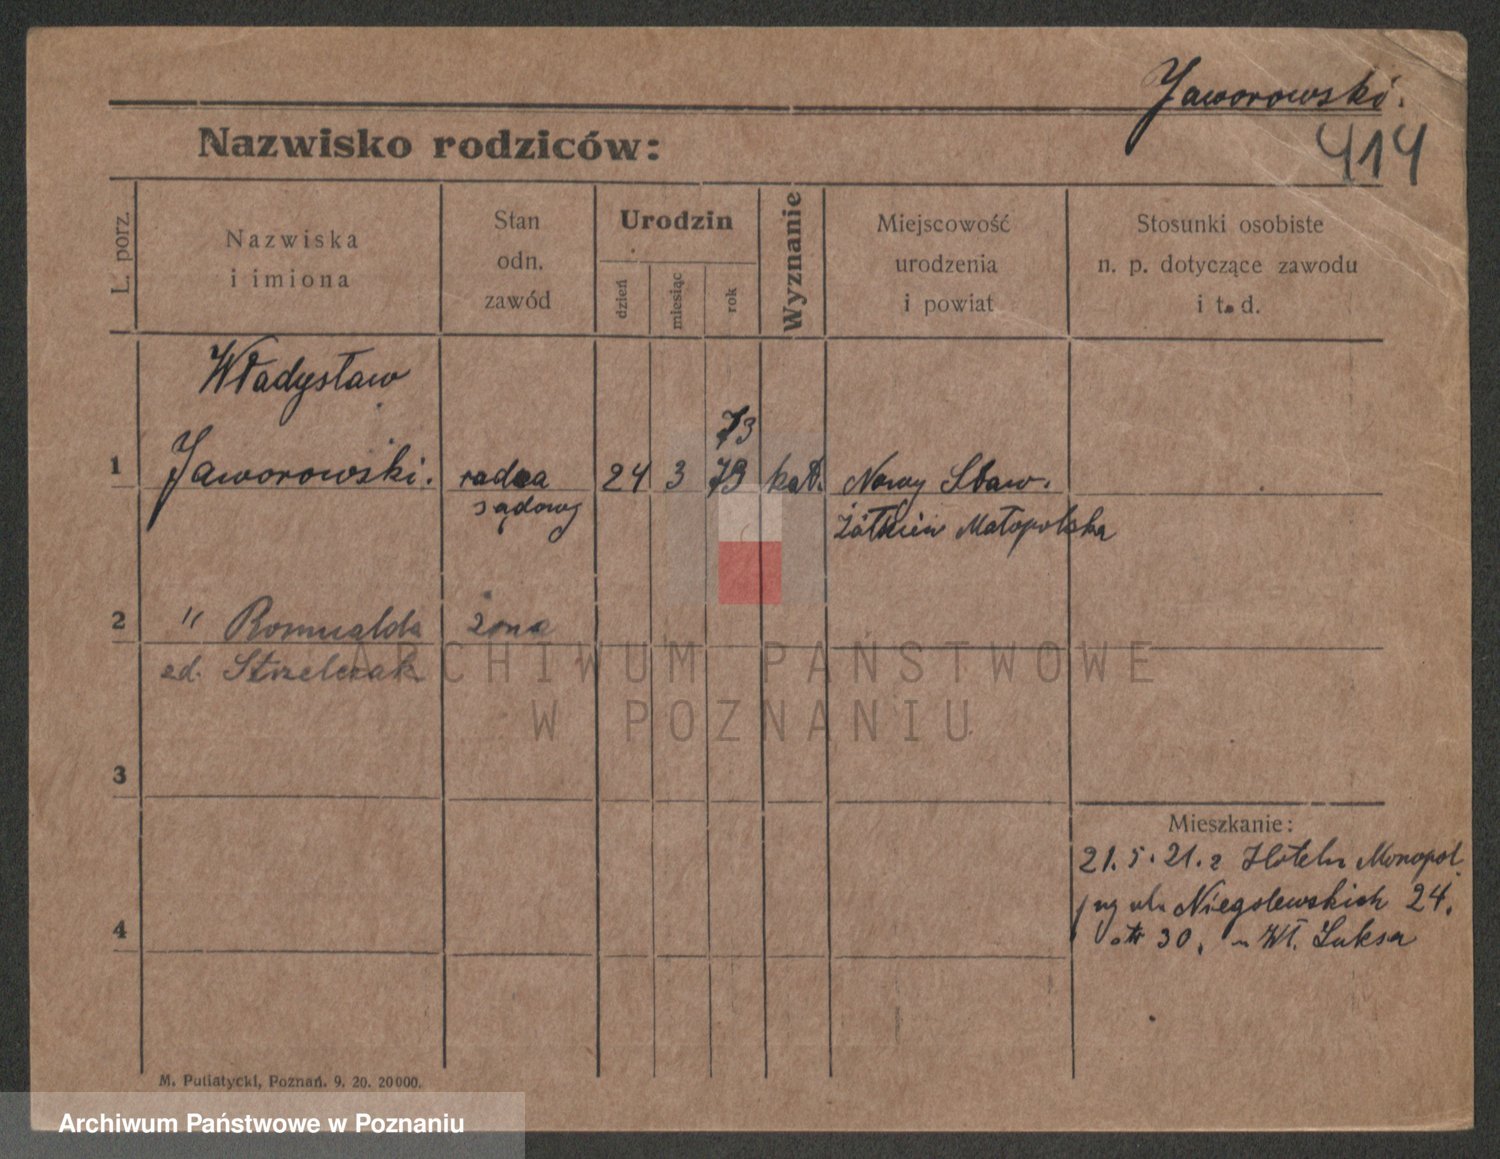 Jaworowski.
414
Nazwisko rodziców:
L. porz.
Nazwiska
i imiona
Stan
odn.
zawód
Urodzin
dzień
miesiąc
rok
Wyznanie
Miejscowość
urodzenia
i powiat
Stosunki osobiste
n. p. dotyczące zawodu
i t. d.
Władysław
73
1 Jaworowski. radca 24 3 73 kat. Nowy Staw.
sądowy Żółkiew Małopolska
2 " Romualda żona
zd. Strzelczak
ARCHIWUM PAŃSTWOWE
W POZNANIU
3
Mieszkanie:
21.5.21. z Hotelu Monopol
ul. Niegolewskich 24.
4
30. u Wł. Luksa
M. Putiatycki, Poznań. 9. 20. 20000.
Archiwum Państwowe w Poznaniu